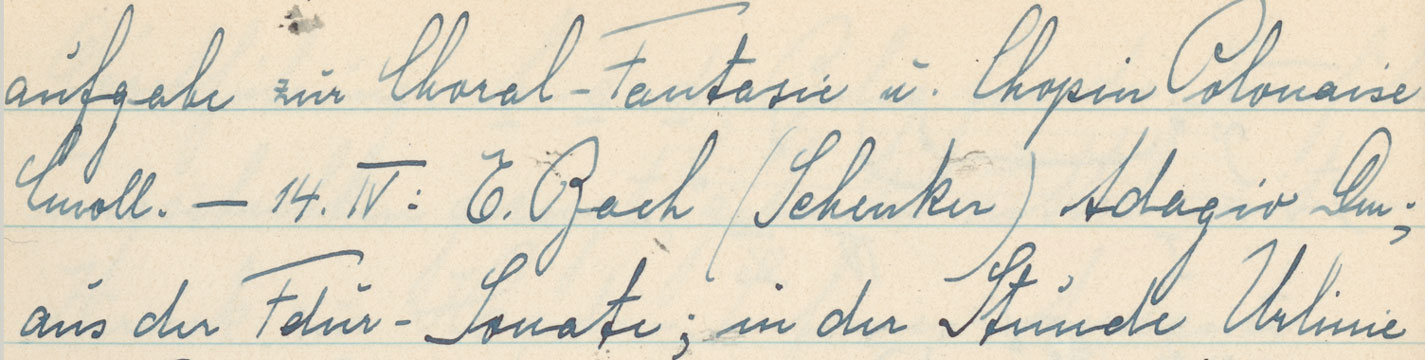 aufgabe zur Choral-Fantasie u. Chopin Polonaise
Cmoll. — 14. IV: E. Bach (Schenker) Adagio Dm;
aus der Fdur-Sonate; in der Stunde Urlinie